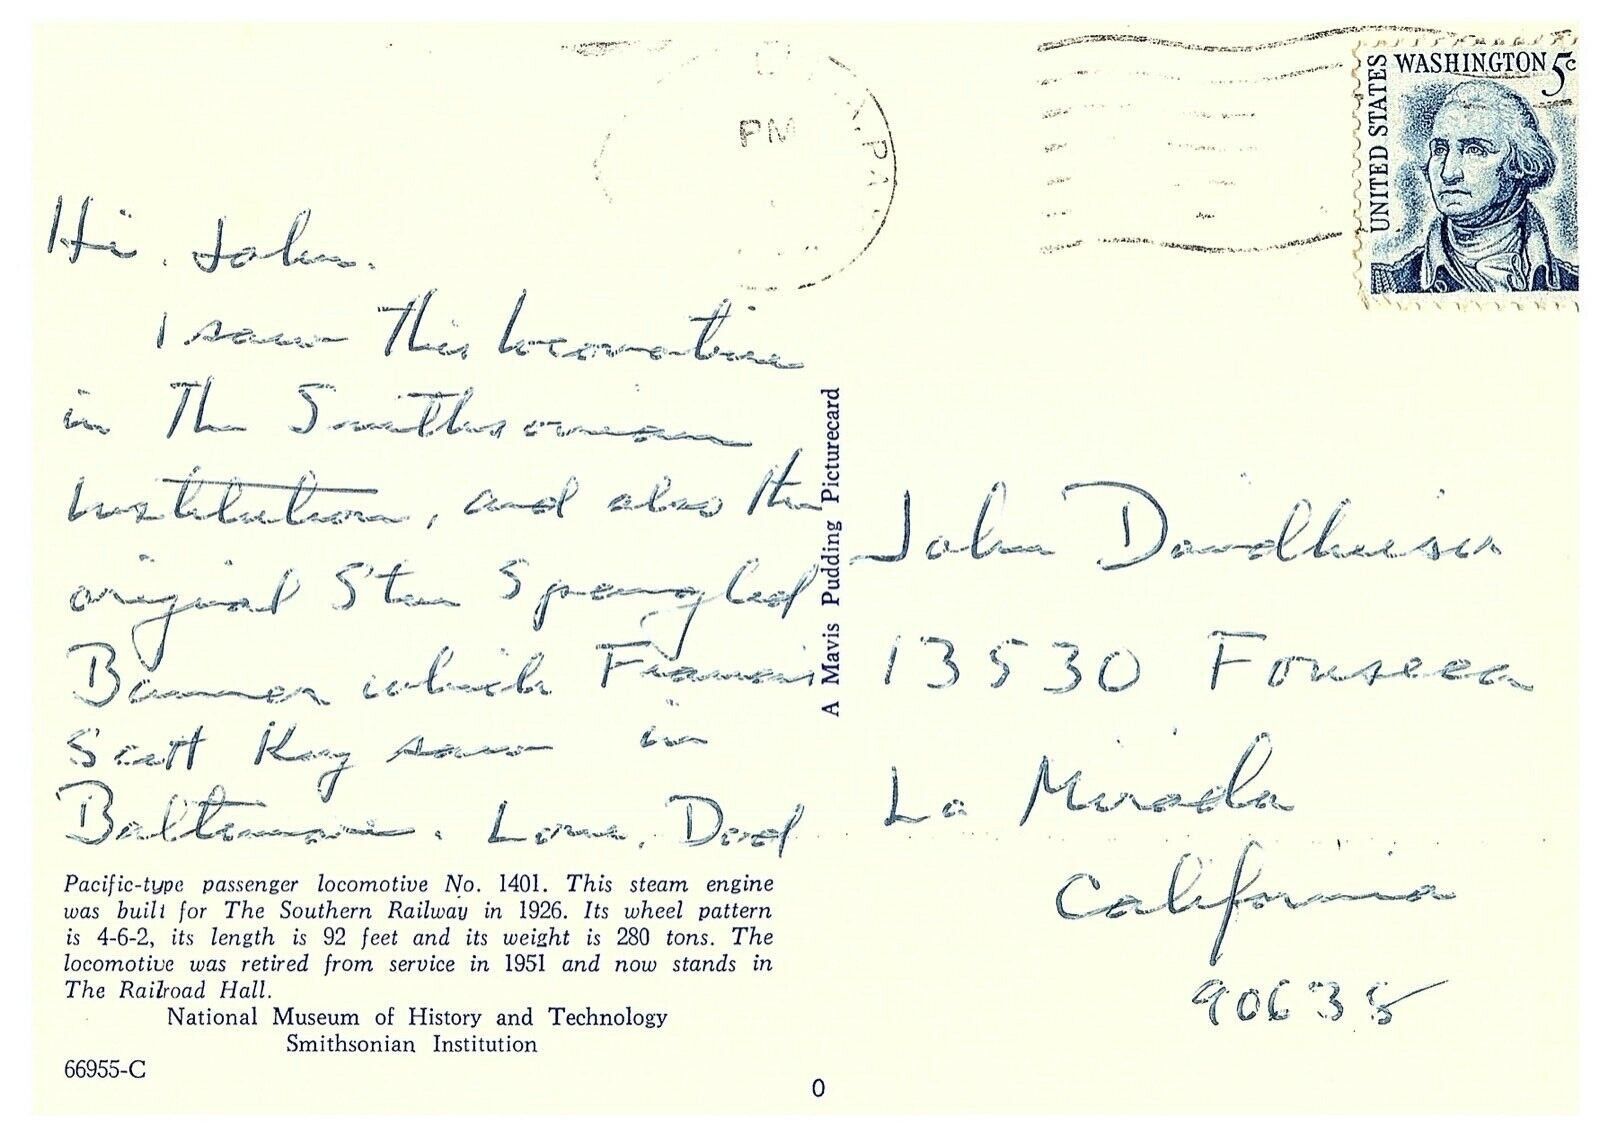 PM
PA
UNITED STATES
WASHINGTON 5c
Hi. John.
I saw this locomotive
in The Smithsonian
Institution, and also the
original Star Spangled
Banner which Francis
Scott Key saw in
Baltimore. Love, Dad
Pacific-type passenger locomotive No. 1401. This steam engine
was built for The Southern Railway in 1926. Its wheel pattern
is 4-6-2, its length is 92 feet and its weight is 280 tons. The
locomotive was retired from service in 1951 and now stands in
The Railroad Hall.
National Museum of History and Technology
Smithsonian Institution
66955-C
A Mavis Pudding Picturecard
John
13530 Fonseca
La Mirada
California
90638
0